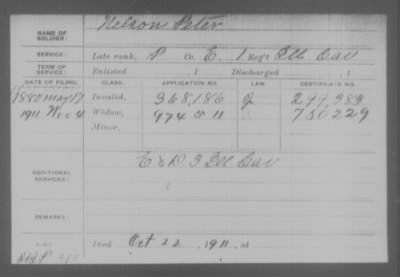 NAME OF SOLDIER: Nelson Peter
SERVICE: Late rank, P Co. E, 1 Reg't Ill Cav
TERM OF SERVICE: Enlisted , 1 Discharged , 1
DATE OF FILING. CLASS. APPLICATION NO. LAW. CERTIFICATE NO.
1880 May 17 Invalid, 368,186 299,383
1911 Nov 4 Widow, 974511 730229
Minor,
ADDITIONAL SERVICES: E & D 3 Ill Cav
REMARKS:
Died Oct 22, 1911, at